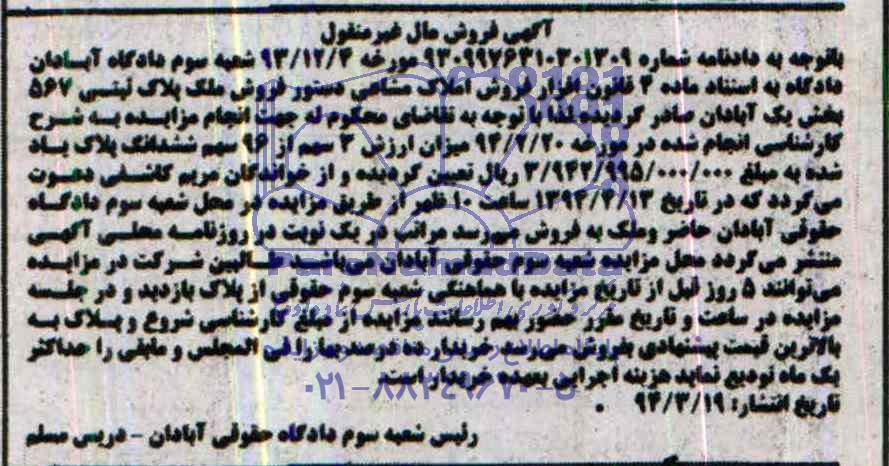 آگهی فروش مال غیرمنقول
باتوجه به دادنامه شماره ۹۳۰۹۹۷۶۳۱۰۳۰۱۳۰۹ مورخه ۹۳/۱۲/۴ شعبه سوم دادگاه آبادان
دادگاه به استناد ماده ۴ قانون افراز فروش املاک مشاعی دستور فروش ملک پلاک ثبتی ۵۶۷
بخش یک آبادان صادر گردیده لذا با توجه به تقاضای محکوم له جهت انجام مزایده به شرح
کارشناسی انجام شده در مورخه ۹۴/۲/۲۰ میزان ارزش ۳ سهم از ۹۶ سهم ششدانگ پلاک یاد
شده به مبلغ ۳/۹۴۲/۹۹۵/۰۰۰/۰۰۰ ریال تعیین گردیده و از خواندگان مریم کاشفی دعوت
می گردد که در تاریخ ۱۳۹۴/۴/۱۳ ساعت ۱۰ ظهر از طریق مزایده در محل شعبه سوم دادگاه
حقوقی آبادان حاضر وملک به فروش میرسد مراتب در یک نوبت در روزنامه محلی آگهی
منتشر می گردد محل مزایده شعبه سوم حقوقی آبادان می باشد طالبین شرکت در مزایده
می توانند ۵ روز قبل از تاریخ مزایده با هماهنگی شعبه سوم حقوقی از پلاک بازدید و در جلسه
مزایده در ساعت و تاریخ مقرر حضور بهم رسانند مزایده از مبلغ کارشناسی شروع و پلاک به
بالاترین قیمت پیشنهادی بفروش می رسد خریدار ده درصد بها را فی المجلس و مابقی را حداکثر
یک ماه تودیع نماید هزینه اجرایی بعهده خریدار است.
۰۲۱-۸۸۳۴۹۶۷۰-۵
تاریخ انتشار: ۹۴/۳/۱۹
رئیس شعبه سوم دادگاه حقوقی آبادان - دریس مسلم